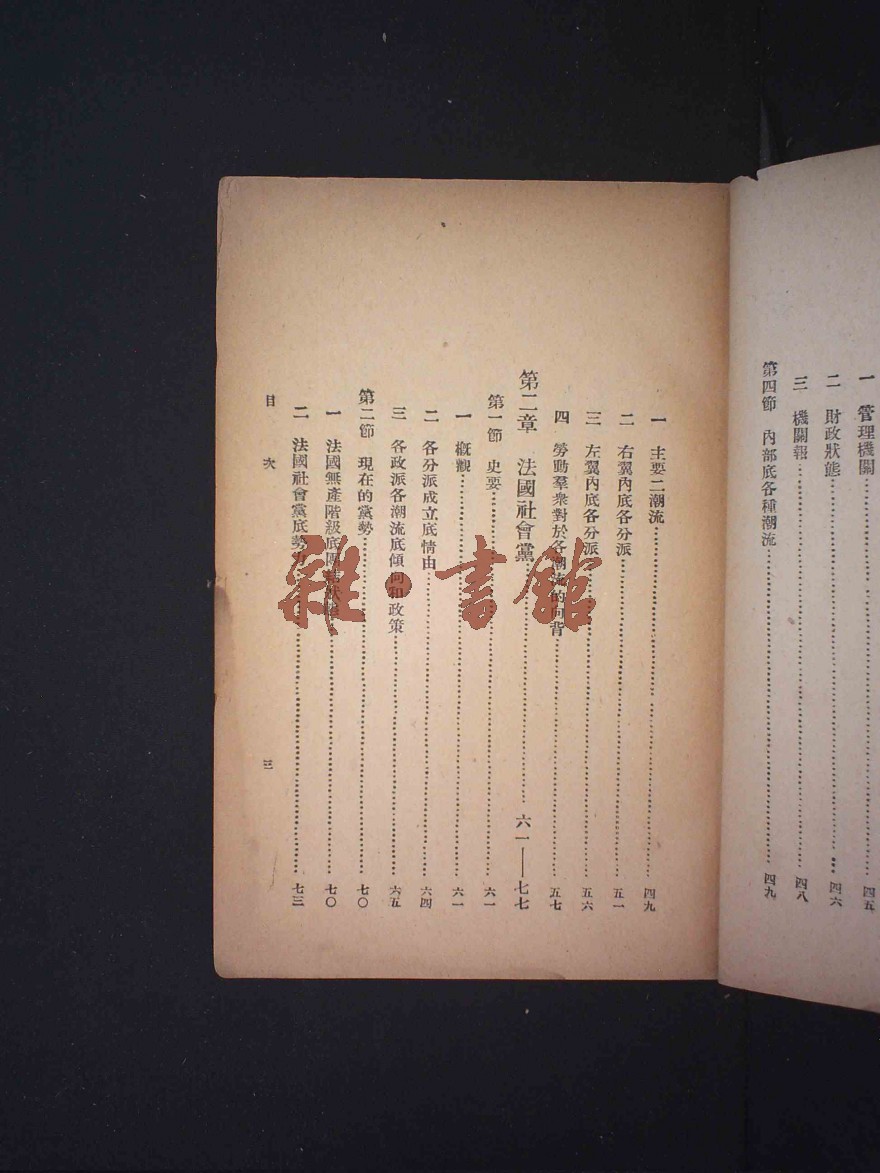 一 管理機關……四五
二 財政狀態……四六
三 機關報……四八
第四節 內部底各種潮流……四九
一 主要二潮流……四九
二 右翼內底各分派……五一
三 左翼內底各分派……五六
四 勞動羣衆對於各潮流的向背……五七
第二章 法國社會黨……六一——七七
第一節 史要……六一
一 概觀……六一
二 各分派成立底情由……六四
三 各政派各潮流底傾向和政策……六五
第二節 現在的黨勢……七〇
一 法國無產階級底團結狀態……七〇
二 法國社會黨底勢力……七三
目次
三
雜·書館